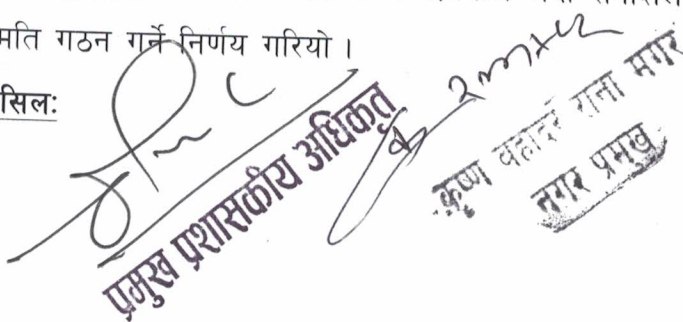 मति गठन गर्ने निर्णय गरियो ।
सिलः
प्रमुख प्रशासकीय अधिकृत
कृष्ण बहादुर राना मगर
नगर प्रमुख